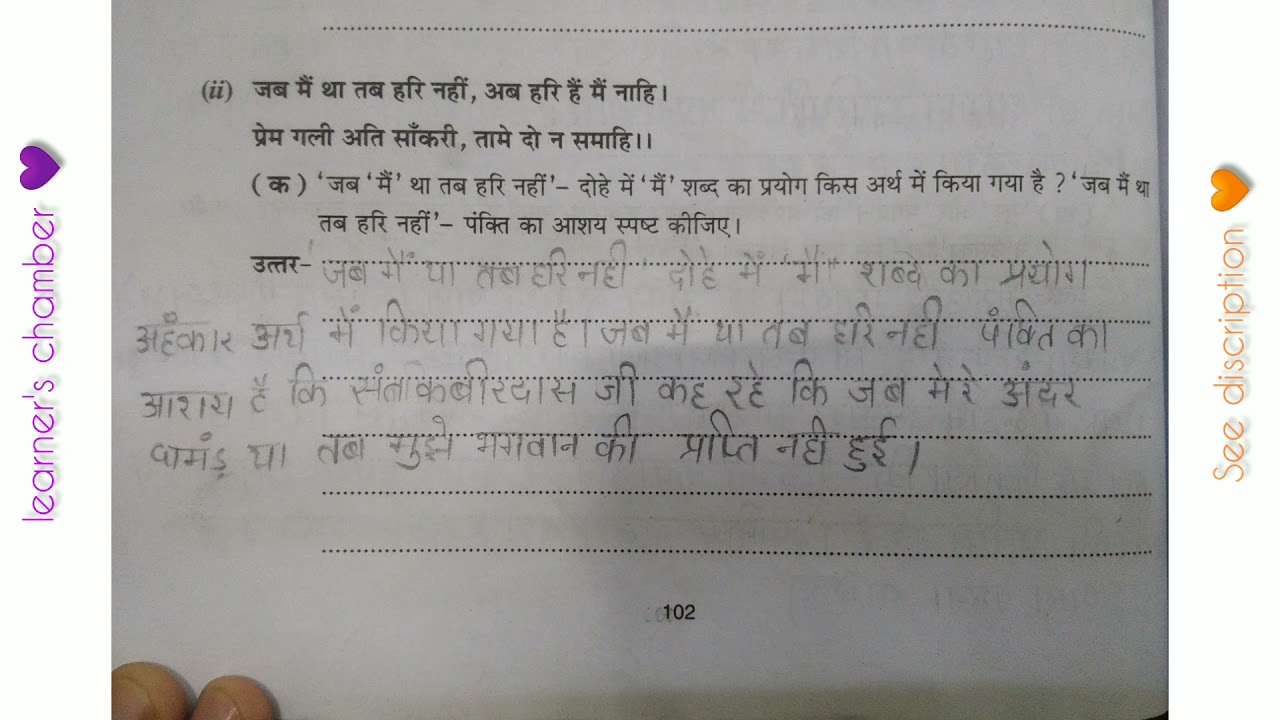 (ii) जब मैं था तब हरि नहीं, अब हरि हैं मैं नाहि।
प्रेम गली अति साँकरी, तामे दो न समाहि।।
(क) 'जब 'मैं' था तब हरि नहीं'– दोहे में 'मैं' शब्द का प्रयोग किस अर्थ में किया गया है ? 'जब मैं था
तब हरि नहीं'– पंक्ति का आशय स्पष्ट कीजिए।
उत्तर– 'जब मैं था तब हरि नही' दोहे में 'मैं' शब्द का प्रयोग
अहंकार अर्थ में किया गया है। जब मैं था तब हरि नही पंक्ति का
आशय है कि संत कबीरदास जी कह रहे कि जब मेरे अंदर
घमंड़ था तब मुझे भगवान की प्राप्ति नही हुई।
102
learner's chamber
See discription